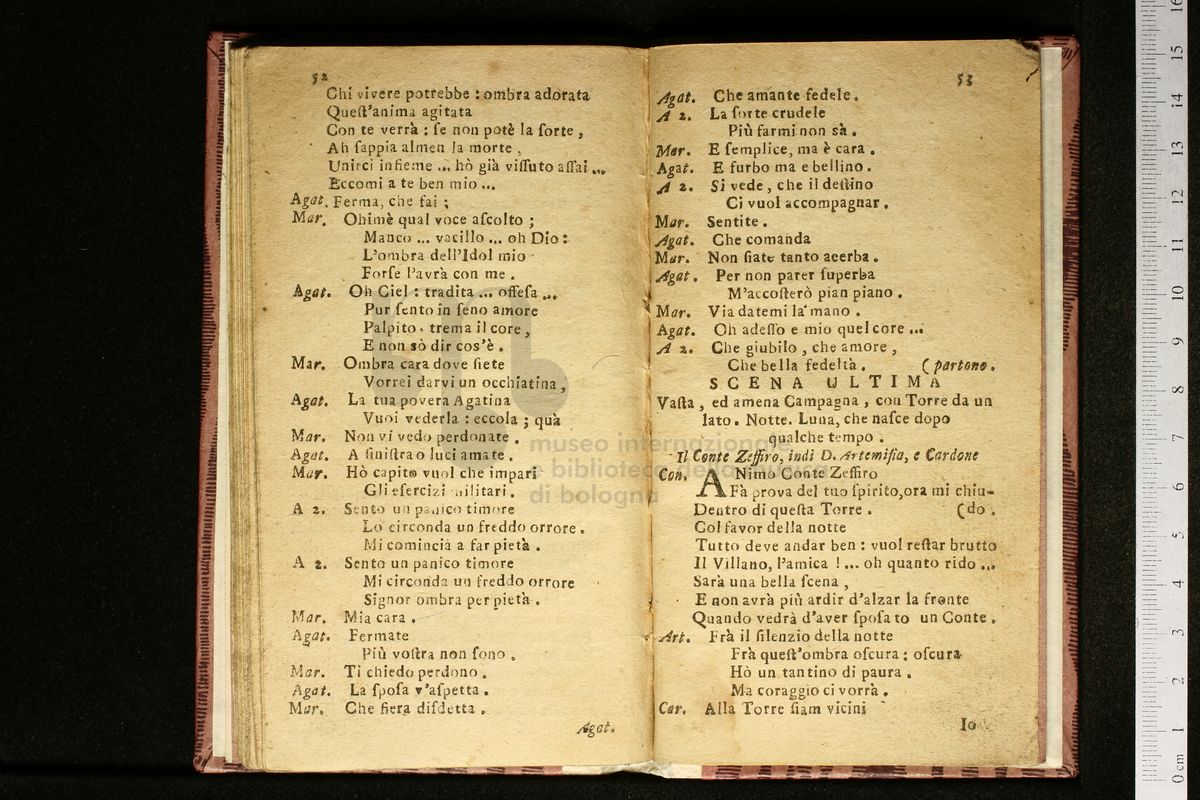 52
Chi vivere potrebbe : ombra adorata
Queſt'anima agitata
Con te verrà : ſe non potè la ſorte ,
Ah ſappia almen la morte ,
Unirci inſieme ... hò già viſſuto aſſai ...
Eccomi a te ben mio ...
Agat. Ferma, che fai ;
Mar. Ohimè qual voce aſcolto ;
Manco ... vacillo ... oh Dio :
L'ombra dell'Idol mio
Forſe l'avrà con me .
Agat. Oh Ciel : tradita ... offeſa ...
Pur ſento in ſeno amore
Palpito . trema il core ,
E non sò dir cos'è .
Mar. Ombra cara dove ſiete
Vorrei darvi un occhiatina ,
Agat. La tua povera Agatina
Vuoi vederla : eccola ; quà
Mar. Non vi vedo perdonate .
Agat. A ſiniſtra o luci amate .
Mar. Hò capito vuol che impari
Gli eſercizi militari .
A 2. Sento un panico timore
Lo circonda un freddo orrore .
Mi comincia a far pietà .
A 2. Sento un panico timore
Mi circonda un freddo orrore
Signor ombra per pietà .
Mar. Mia cara .
Agat. Fermate
Più voſtra non ſono .
Mar. Ti chiedo perdono .
Agat. La ſpoſa v'aſpetta .
Mar. Che fiera diſdetta .
Agat.
53
Agat. Che amante fedele .
A 2. La ſorte crudele
Più farmi non sà .
Mar. E ſemplice, ma è cara .
Agat. E furbo ma e bellino .
A 2. Si vede , che il deſtino
Ci vuol accompagnar .
Mar. Sentite .
Agat. Che comanda
Mar. Non ſiate tanto acerba .
Agat. Per non parer ſuperba
M'accoſterò pian piano .
Mar. Via datemi la mano .
Agat. Oh adeſſo e mio quel core ...
A 2. Che giubilo , che amore ,
Che bella fedeltà . ( partono .
SCENA ULTIMA
Vaſta , ed amena Campagna , con Torre da un
lato . Notte. Luna, che naſce dopo
qualche tempo .
Il Conte Zeffiro, indi D. Artemiſia, e Cardone
Con. ANimo Conte Zeffiro
Fà prova del tuo ſpirito,ora mi chiu-
Dentro di queſta Torre . (do .
Col favor della notte
Tutto deve andar ben : vuol reſtar brutto
Il Villano, l'amica ! ... oh quanto rido ...
Sarà una bella ſcena ,
E non avrà più ardir d'alzar la fronte
Quando vedrà d'aver ſpoſato un Conte .
Art. Frà il ſilenzio della notte
Frà queſt'ombra oſcura ; oſcura
Hò un tantino di paura .
Ma coraggio ci vorrà .
Car. Alla Torre ſiam vicini
Io
museo internazionale
e biblioteca della musica
di bologna
0 cm 1 2 3 4 5 6 7 8 9 10 11 12 13 14 15 16